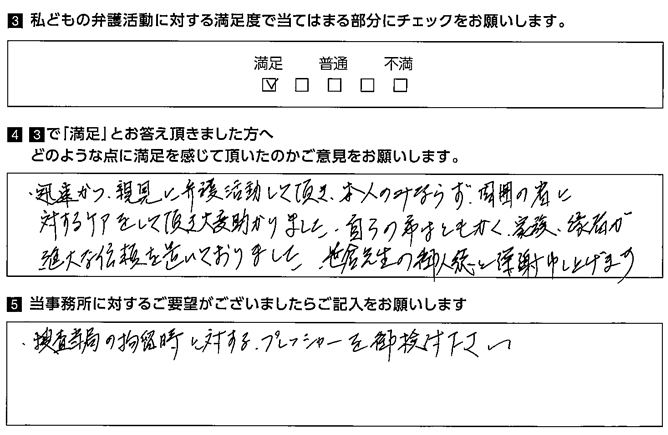 3 私どもの弁護活動に対する満足度で当てはまる部分にチェックをお願いします。
満足 普通 不満
4 3で「満足」とお答え頂きました方へ
どのような点に満足を感じて頂いたのかご意見をお願いします。
・迅速かつ、親身に弁護活動して頂き、本人のみならず、周囲の者に
対するケアをして頂き大変助かりました。自らの事はともかく、家族、縁者が
絶大な信頼を置いておりました。先生の御人徳と深謝申し上げます
5 当事務所に対するご要望がございましたらご記入をお願いします
・捜査当局の拘留時に対する、プレッシャーを御検討下さい